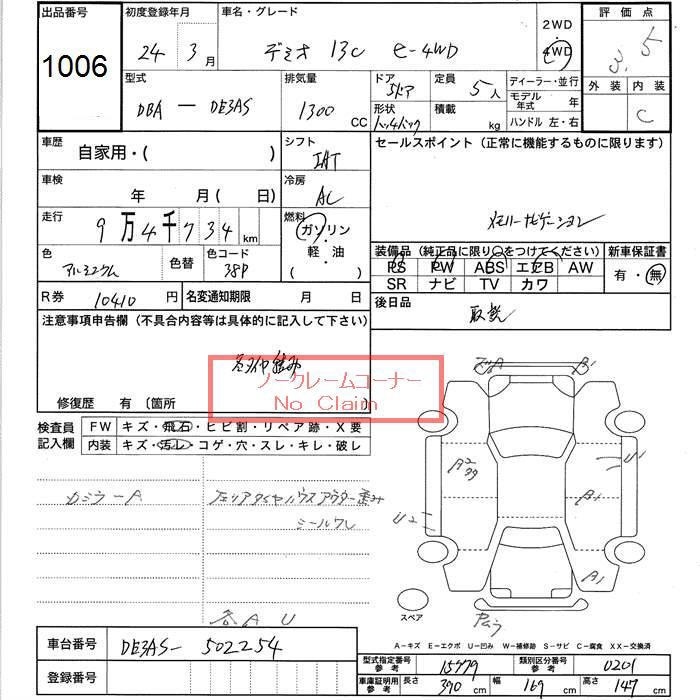 出品番号 初度登録年月 車名・グレード 2WD 評価点
1006 24 3月 デミオ 13C e-4WD 4WD 3.5
型式 排気量 ドア 定員 ディーラー・並行 外装 内装
DBA - DE3AS 1300 CC 5ドア 5人 モデル年式 年 C
形状 積載 kg ハンドル 左・右
車歴 自家用・( ) シフト IAT セールスポイント (正常に機能するものに限ります)
車検 年 月(日) 冷房 AC
メモリーナビゲーション
走行 9万4千734km 燃料 ガソリン・軽・油・( )
色 アルミニウム 色替 色コード 38P
装備品 (純正品に限り〇をつけてください) 新車保証書
PS PW ABS エアB AW 有・無
SR ナビ TV カワ
R券 10410円 名変通知期限 月 日 後日品 取説
注意事項申告欄 (不具合内容等は具体的に記入して下さい)
ノークレームコーナー
No Claim
修復歴 有 〔箇所
検査員記入欄 FW キズ・飛石・ヒビ割・リペア跡・X要
内装 キズ・汚レ・コゲ・穴・スレ・キレ・破レ
カジラーA 左リアタイヤハウスアウター歪み
シールワレ
各A U
A A1
A2 U1
U2 A1
A1
スペア
A-キズ E-エクボ U-凹み W-補修跡 S-サビ C-腐食 XX-交換済
車台番号 DE3AS-502254
型式指定番号 参考 15779 類別区分番号 参考 0201
登録番号 車庫証明用 参考 長さ 390cm 幅 169cm 高さ 147cm